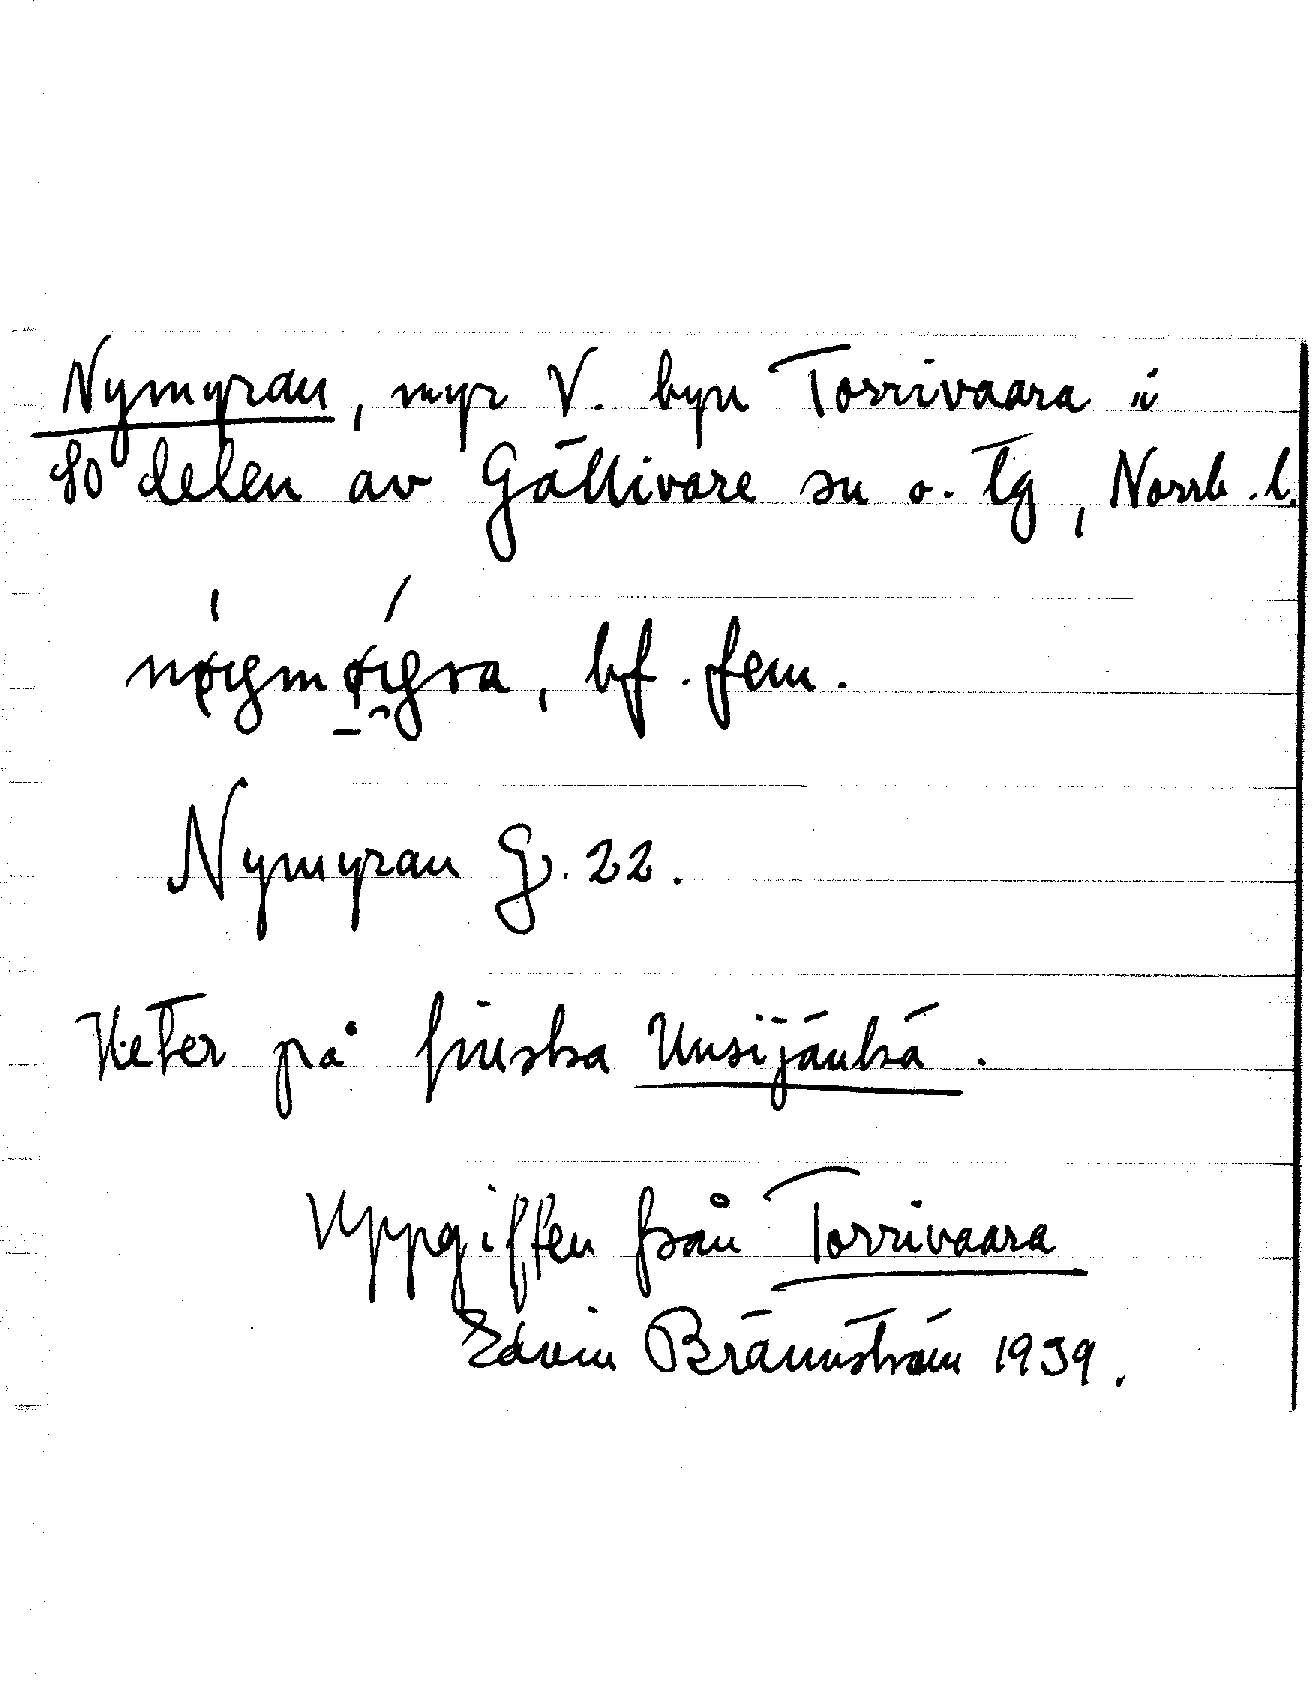 Nymyran, myr V. byn Torrivaara i
SO delen av Gällivare sn o. tg, Norrb. l.
bf. fem.
Nymyran G. 22.
Heter på finska Uusijänkä.
Uppgiften från Torrivaara
Edvin Brännström 1939.